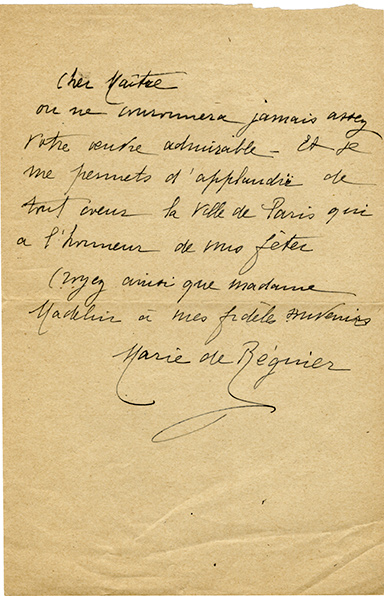 Cher Maître
on ne couronnera jamais assez
votre œuvre admirable - Et je
me permets d'applaudir de
tout cœur la Ville de Paris qui
a l'honneur de vous fêter
Croyez ainsi que madame
Madelin à mes fidèles souvenirs
Marie de Régnier